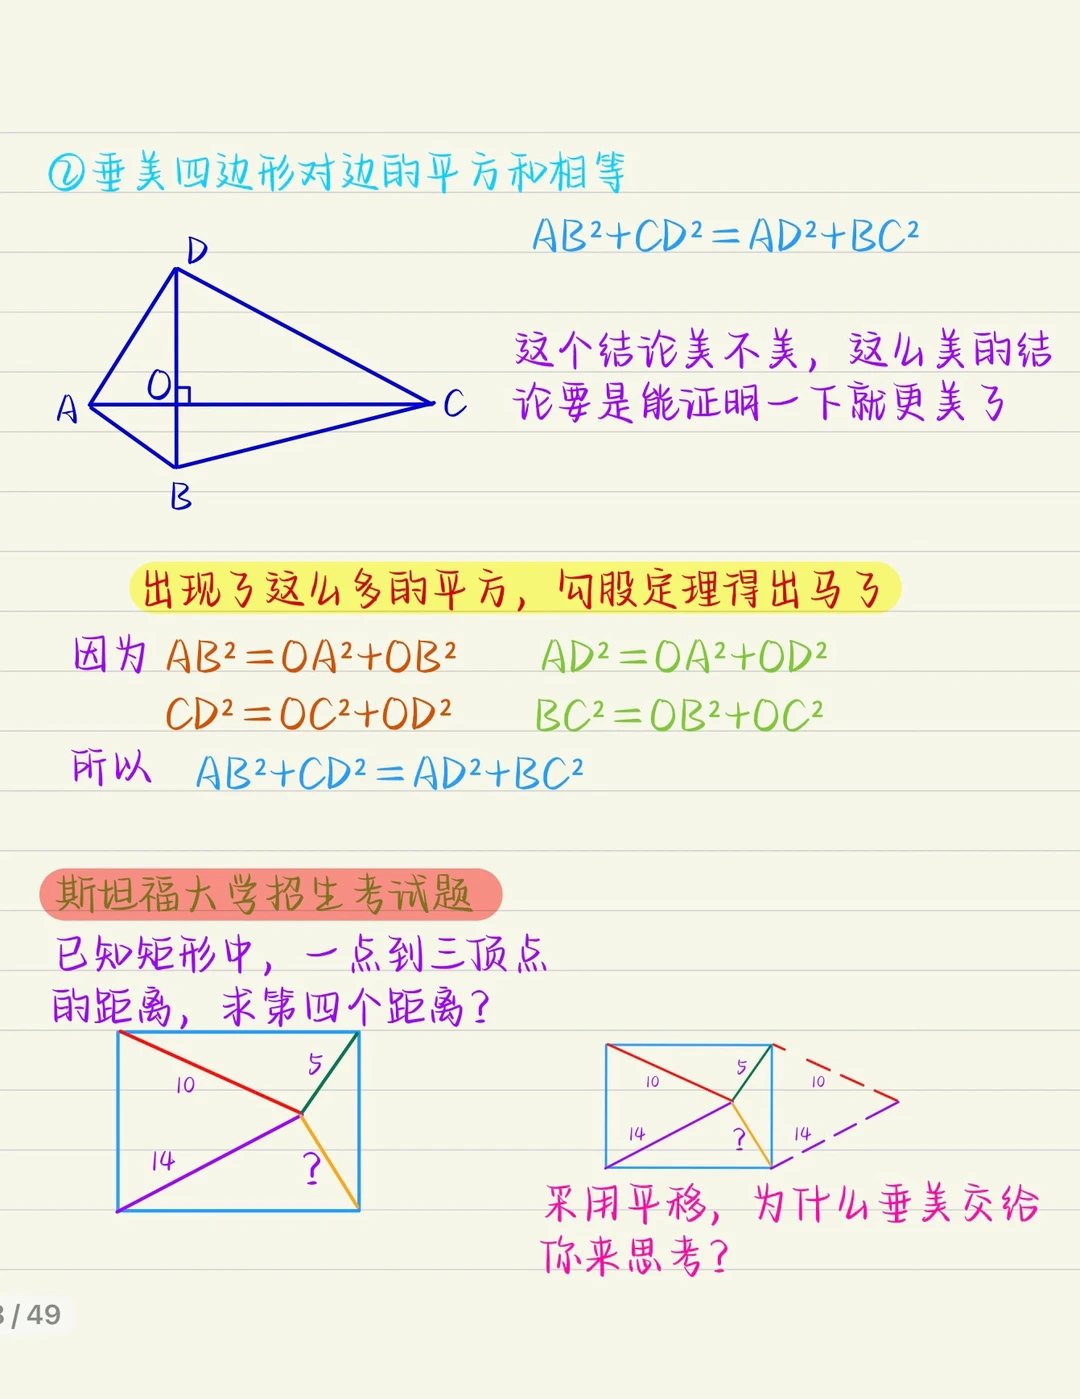 ②垂美四边形对边的平方和相等
AB²+CD²=AD²+BC²
D
O
A
C
B
这个结论美不美，这么美的结
论要是能证明一下就更美了
出现了这么多的平方，勾股定理得出马了
因为 AB²=OA²+OB² AD²=OA²+OD²
CD²=OC²+OD² BC²=OB²+OC²
所以 AB²+CD²=AD²+BC²
斯坦福大学招生考试题
已知矩形中，一点到三顶点
的距离，求第四个距离？
5
10
14
?
5
10
10
14
?
14
采用平移，为什么垂美交给
你来思考？
3/49